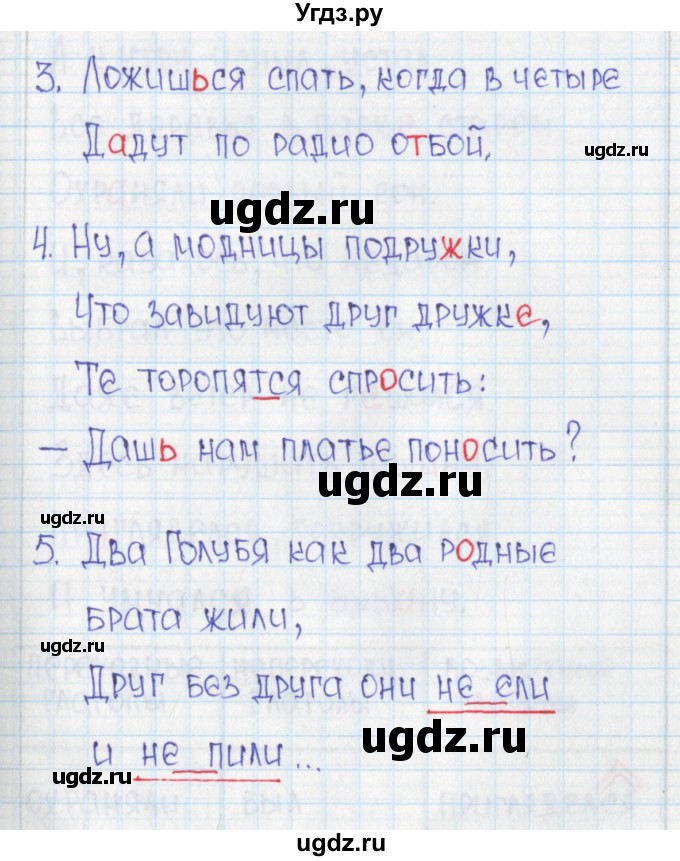 Угдз.ру
3. Ложишься спать, когда в четыре
Дадут по радио отбой.
ugdz.ru
ugdz.ru
4. Ну, а модницы подружки,
Что завидуют друг дружке,
Те торопятся спросить:
– Дашь нам платье поносить?
ugdz.ru
ugdz.ru
5. Два голубя как два родные
брата жили,
Друг без друга они не ели
ugdz.ru
и не пили...
ugdz.ru
ugdz.ru
ugdz.ru